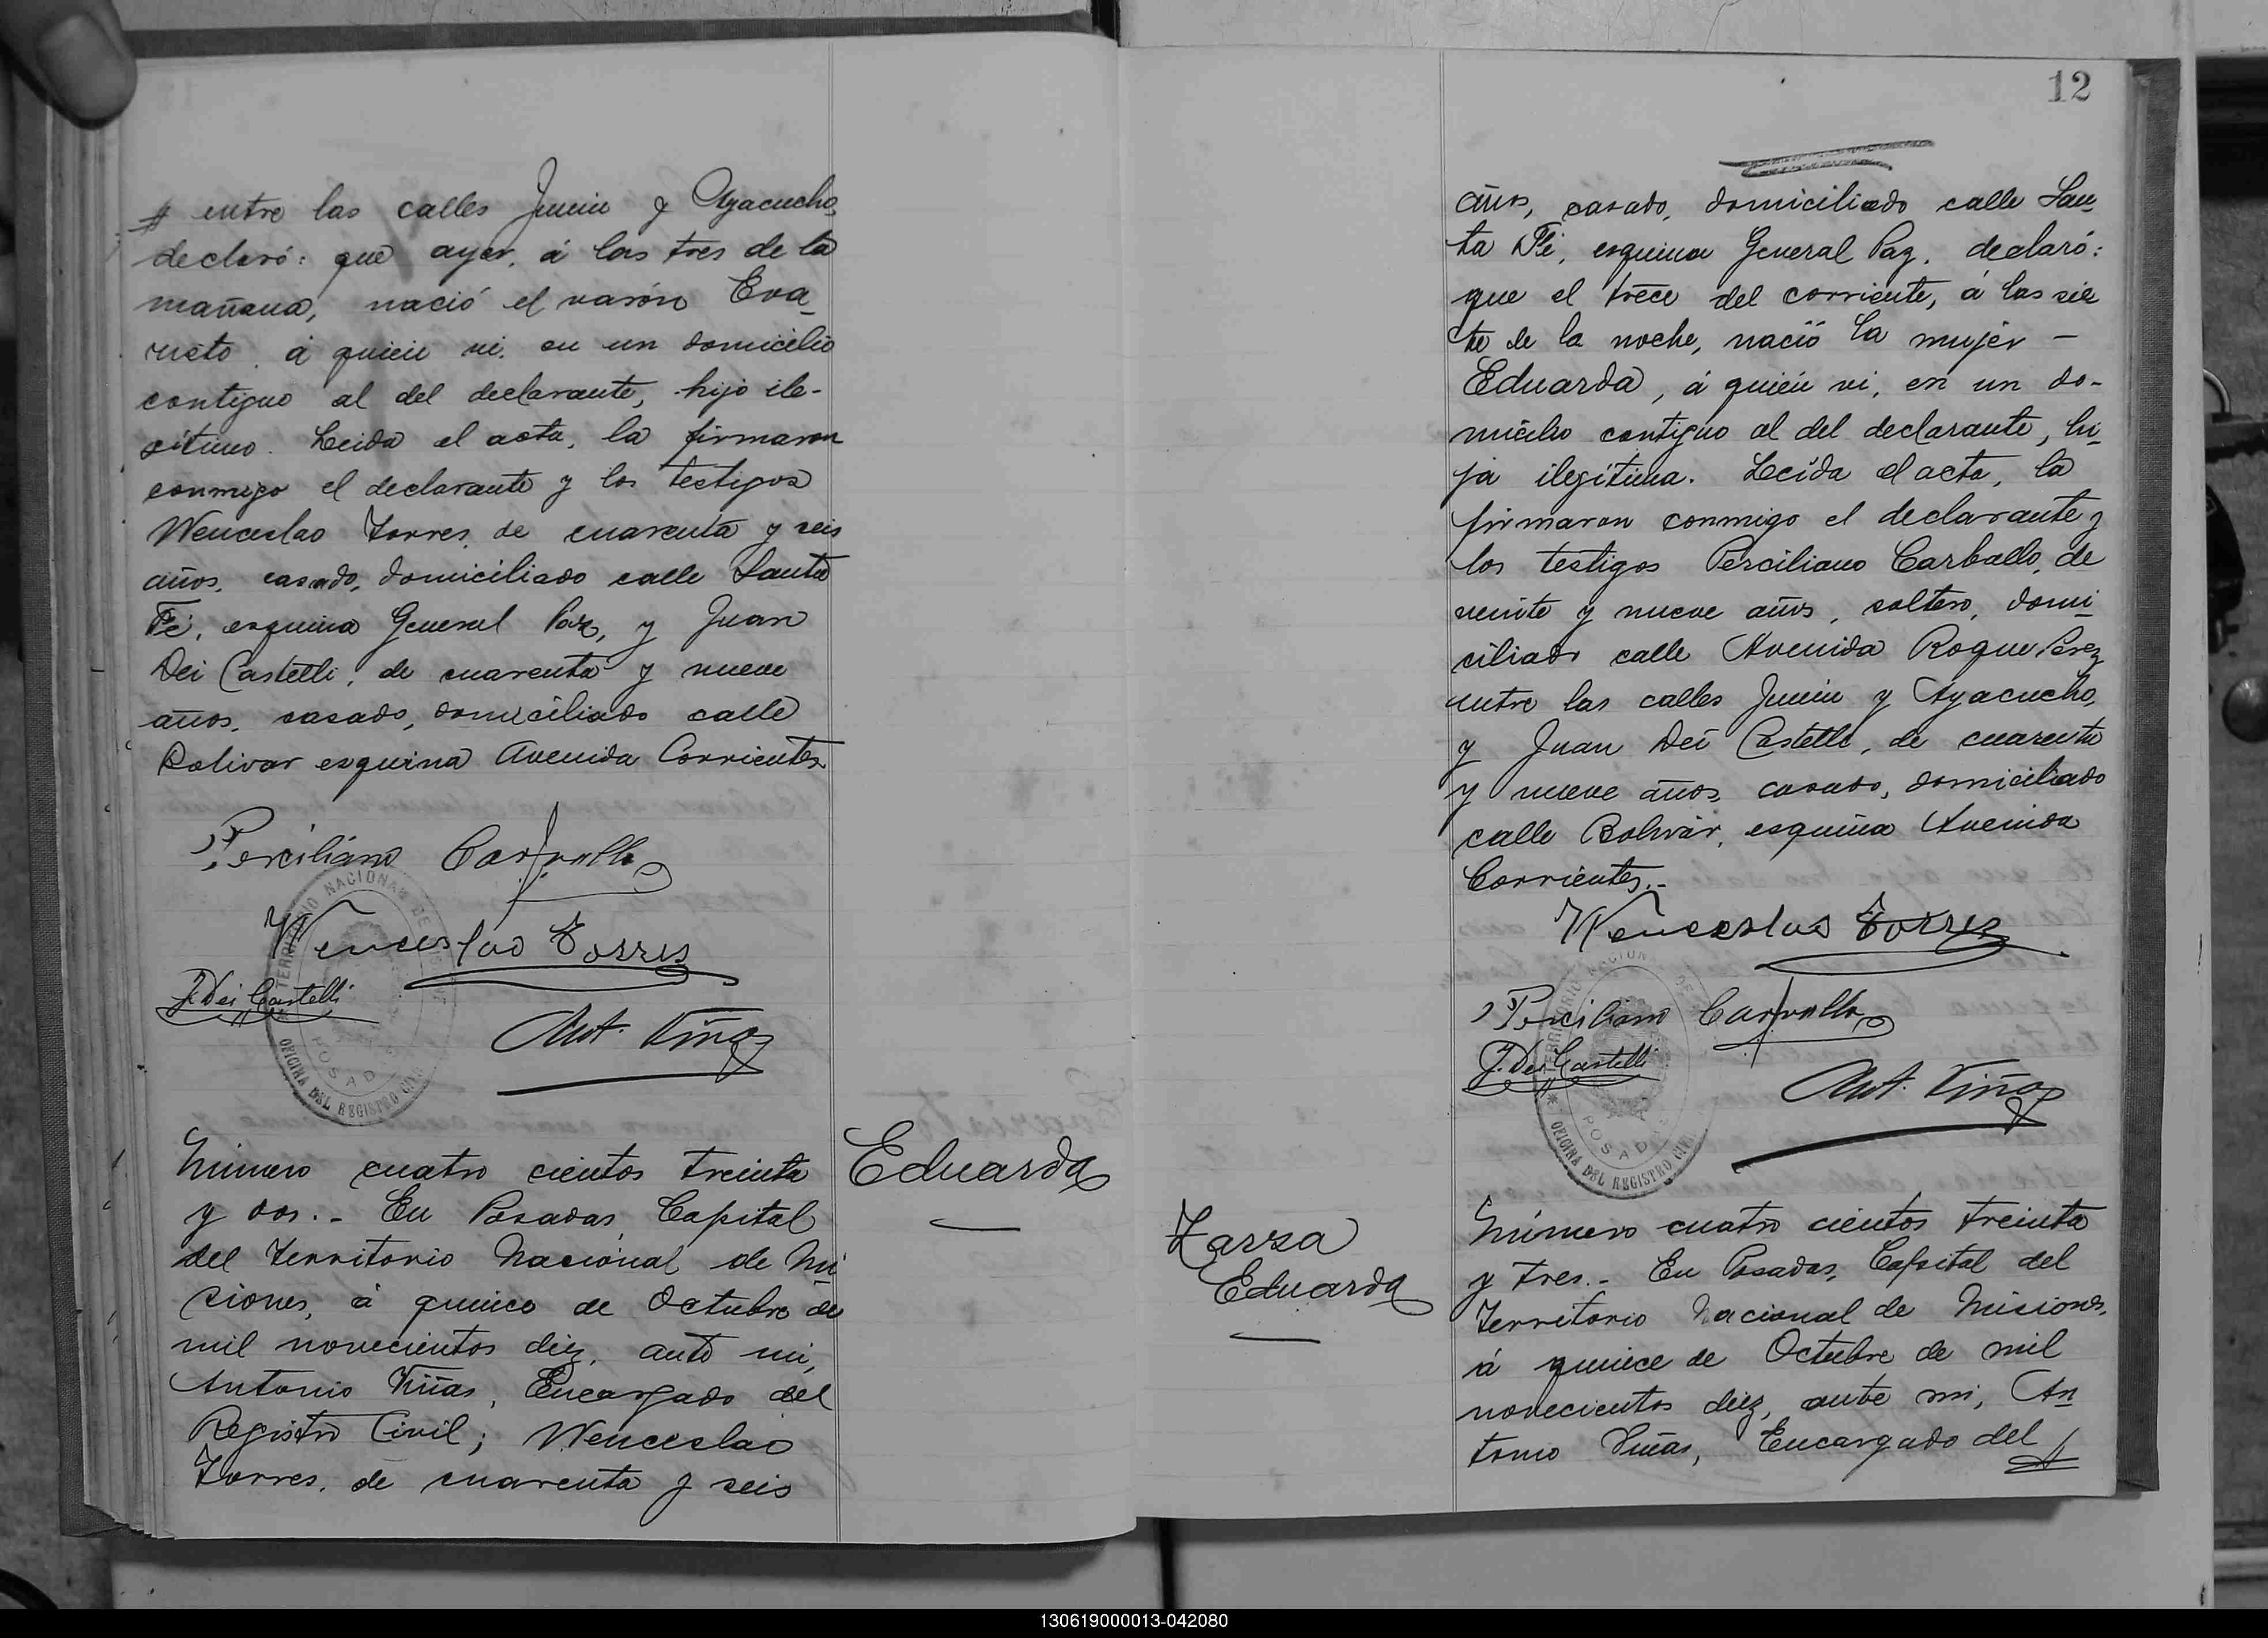 entre las calles Junin y Ayacucho,
declaró: que ayer, á las tres de la
mañana, nació el varón Eva_
risto, á quien vi, en un domicilio
contiguo al del declarante, hijo ile-
gítimo. Leida el acta, la firmaron
conmigo el declarante y los testigos
Wenceslao Torres, de cuarenta y seis
años, casado, domiciliado calle Santa
Fé, esquina General Paz, y Juan
Dei Castelli, de cuarenta y nueve
años, casado, domiciliado calle
Bolivar esquina Avenida Corrientes.
Perciliano Carvallo
Wenceslao Torres
J. Dei Castelli
Ant. Viñas
TERRITORIO NACIONAL DE
POSADAS
OFICINA DEL REGISTRO CIVIL
Eduarda
Número cuatro cientos treinta
y dos.- En Posadas, Capital
del Territorio Nacional de Mi_
siones, á quince de Octubre de
mil novecientos diez, ante mi,
Antonio Viñas, Encargado del
Registro Civil; Wenceslao
Torres, de cuarenta y seis
12
años, casado, domiciliado calle San_
ta Fé, esquina General Paz, declaró:
que el trece del corriente, á las sie
te de la noche, nació la mujer -
Eduarda, á quien vi, en un do-
micilio contiguo al del declarante, hi_
ja ilegítima. Leída el acta, la
firmaron conmigo el declarante y
los testigos Perciliano Carballo, de
veinte y nueve años, soltero, domi_
ciliado calle Avenida Roque Perez
entre las calles Junin y Ayacucho,
y Juan Dei Castelli, de cuarenta
y nueve años, casado, domiciliado
calle Bolivár, esquina Avenida
Corrientes.-
Wenceslao Torres
Perciliano Carvallo
J. Dei Castelli
Ant. Viñas
TERRITORIO NACIONAL DE
POSADAS
OFICINA DEL REGISTRO CIVIL
Zarza
Eduarda
Número cuatro cientos treinta
y tres.- En Posadas, Capital del
Territorio Nacional de Misiones,
á quince de Octubre de mil
novecientos diez, ante mi, An_
tonio Viñas, Encargado del
130619000013-042080